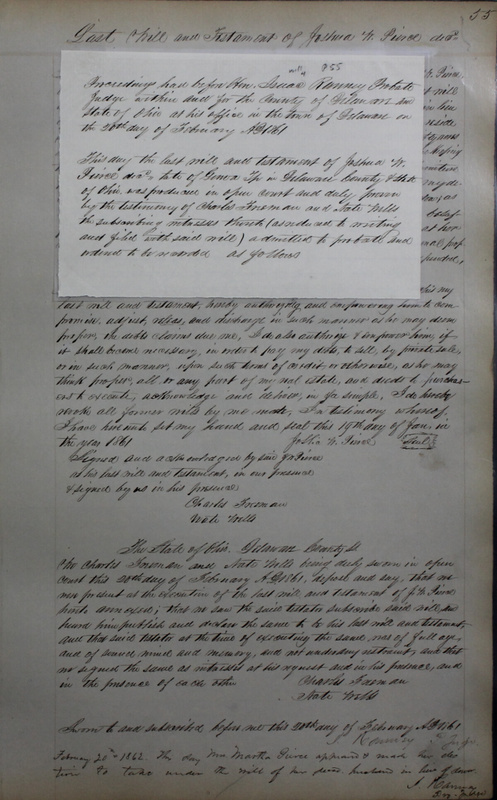 55
Last Will and Testament of Joshua W. Pierce decd
will of 255
Proceedings had before Hon. Isaac Ranney Probate
Judge within and for the County of Delaware and
State of Ohio at his office in the town of Delaware on
the 20th day of February AD 1861
This day the last will and testament of Joshua W.
Pierce decd late of Genoa Tp in Delaware County & State
of Ohio was produced in open court and duly proven
by the testimony of Charles Freeman and Nate Wells
the subscribing witnesses thereto (as reduced to writing
and filed with said will) admitted to probate and
ordered to be recorded as follows
last will and testament, hereby authorizing and empowering him to com
promise, adjust, release, and discharge in such manner as he may deem
proper, the debts & claims due me, I do also authorize & empower him, if
it shall become necessary, in order to pay my debts, to sell, by private sale,
or in such manner, upon such terms of credit, or otherwise, as he may
think proper, all or any part of my real estate, and deeds to purchas-
ers to execute, acknowledge and deliver, in fee simple, I do hereby
revoke all former wills by me made, In testimony whereof,
I have hereunto set my hand and seal this 19th day of Jan. in
the year 1861
Joshua W. Pierce Seal
Signed and acknowledged by said Pierce
as his last will and testament, in our presence
& signed by us in his presence
Charles Freeman
Nate Wells
The State of Ohio, Delaware County SS
We Charles Freeman and Nate Wells being duly sworn in open
court this 20th day of February AD 1861, depose and say, that we
were present at the execution of the last will and testament of J. W. Pierce
hereto annexed; that we saw the said testator subscribe said will, and
heard him publish and declare the same to be his last will and testament
and that said testator at the time of executing the same was of full age,
and of sound mind and memory, and not under any restraint, and that
we signed the same as witnesses at his request and in his presence, and
in the presence of each other
Charles Freeman
Nate Wells
Sworn to and subscribed before me this 20th day of February AD 1861
I. Ranney
February 20th 1862. This day Mrs Martha Pierce appeared & made her elec
tion to take under the will of her decd. husband in lieu of dower
I. Ranney